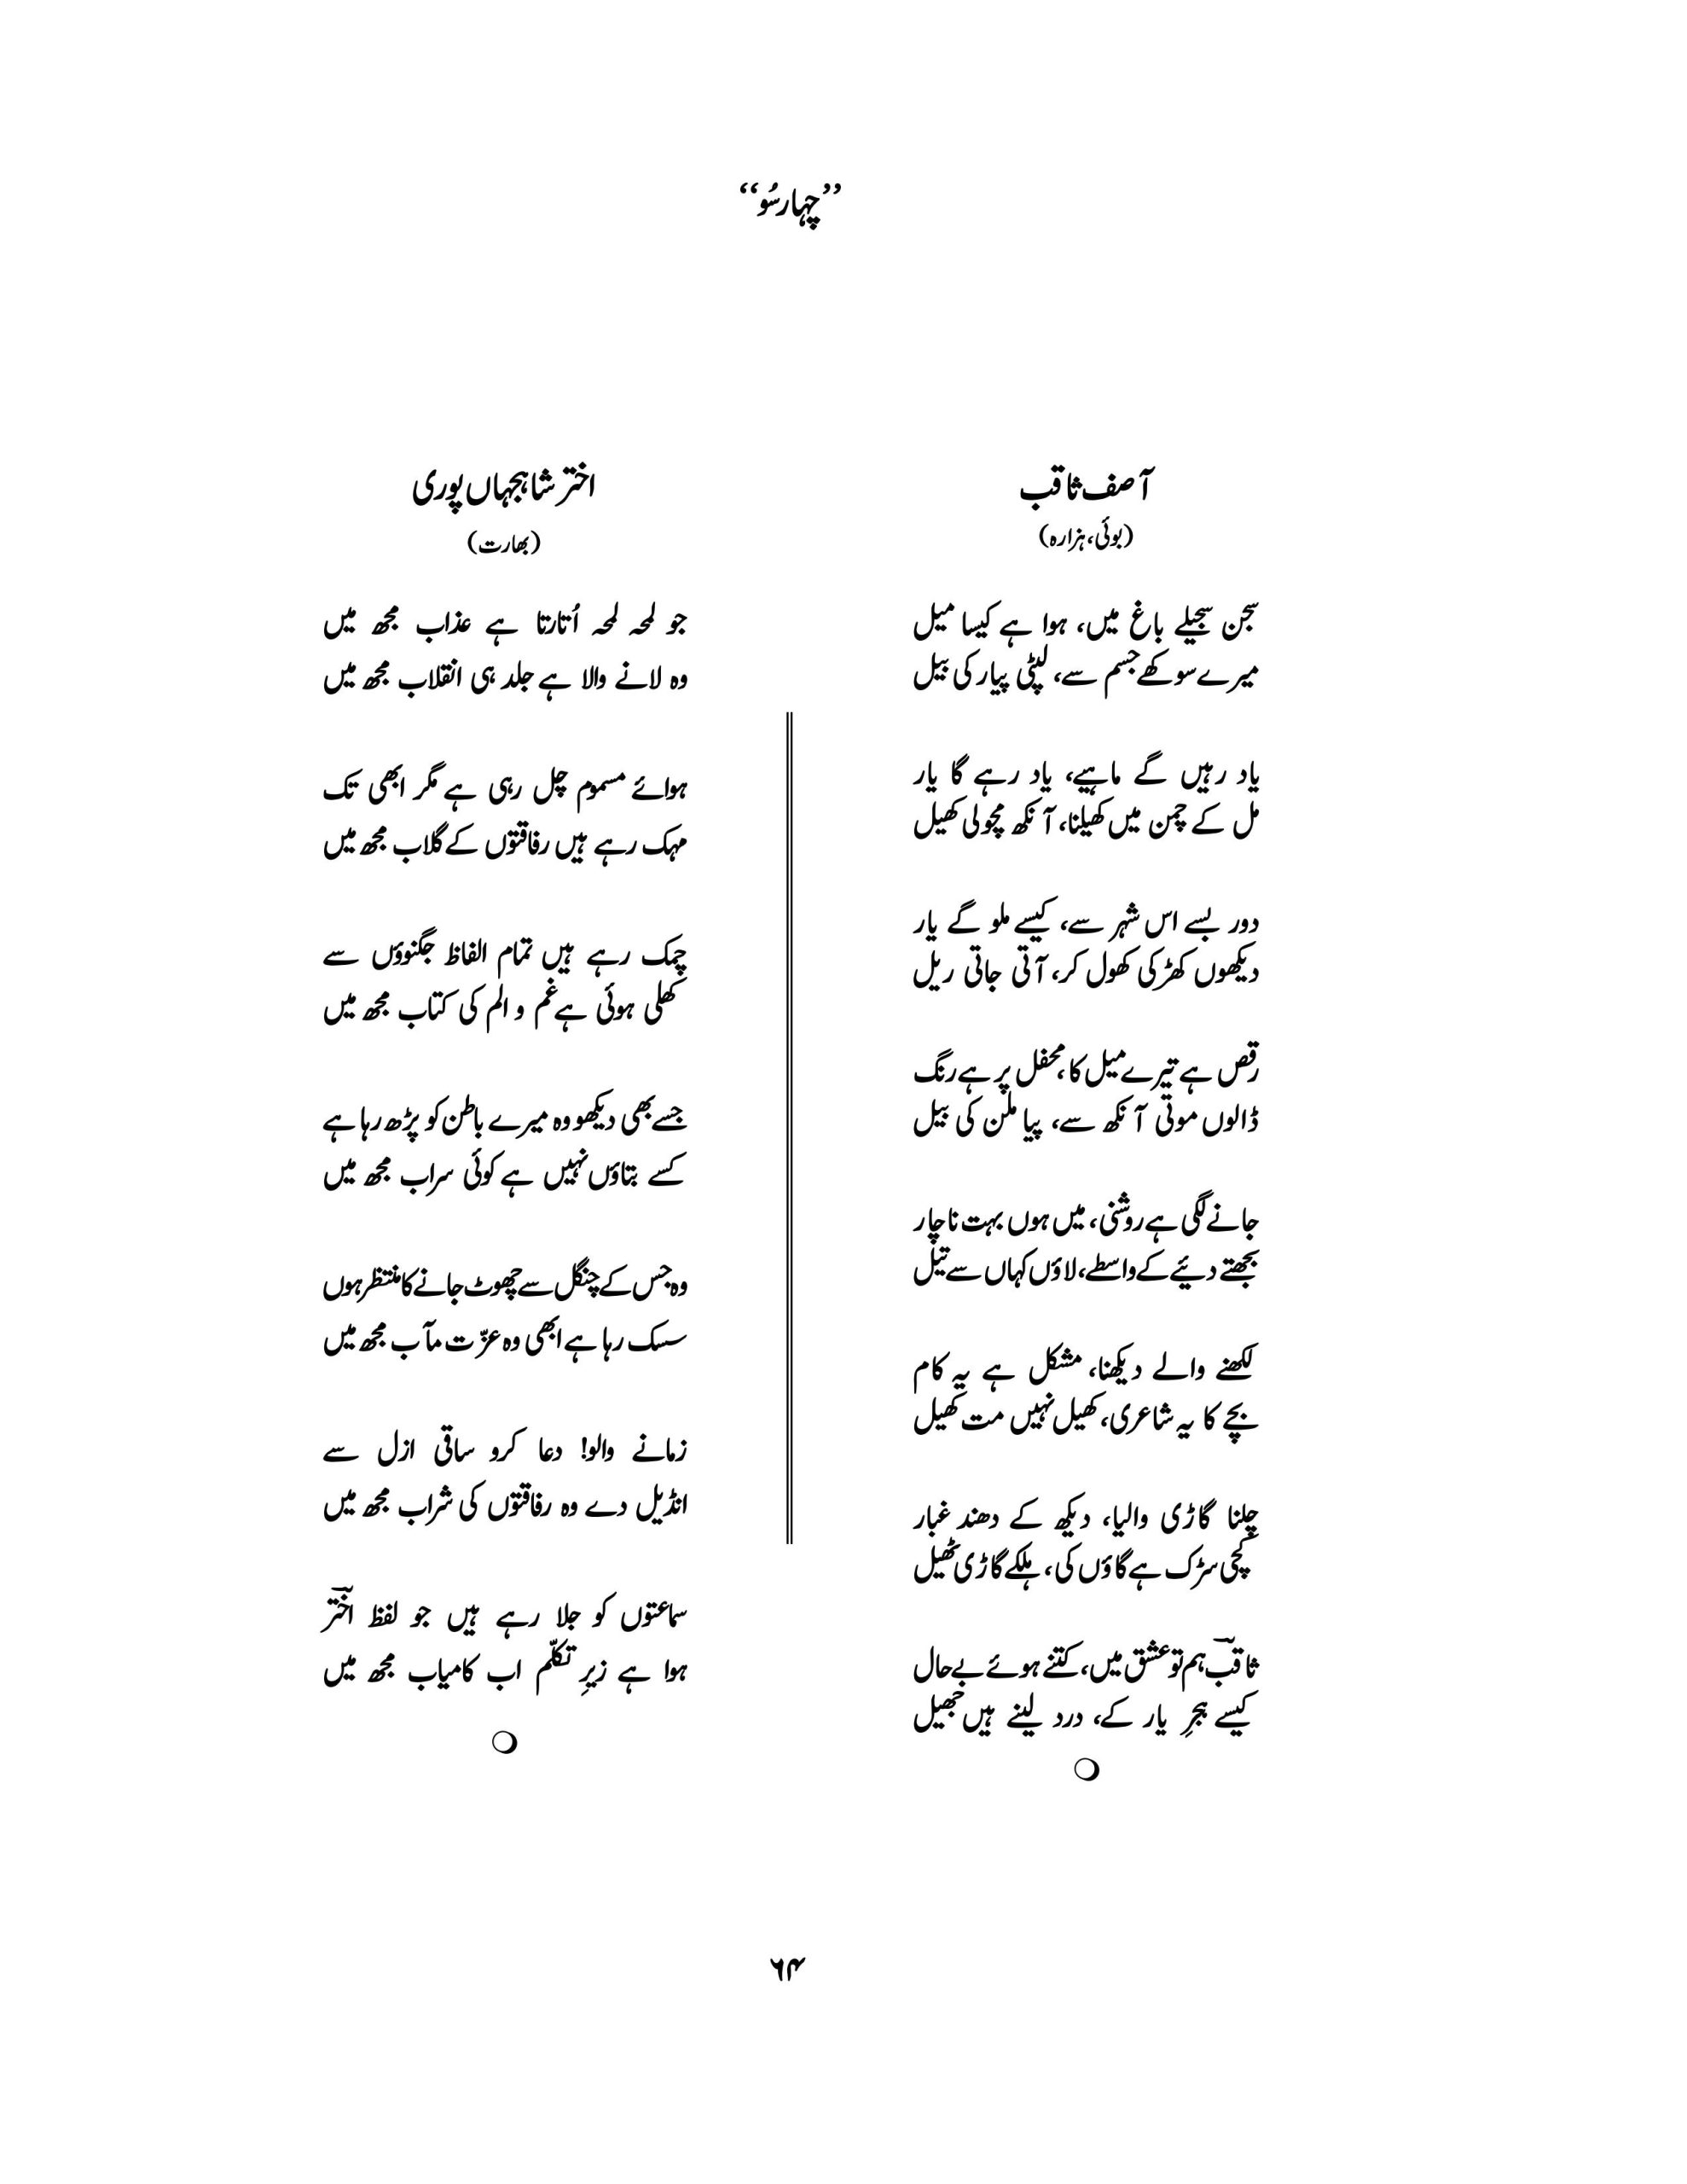 ’’چہارسُو‘‘
آصف ثاقب
(بوئی، ہزارہ)
سجن سجیلے باغ میں، ہوا ہے کیسا میل
میرے سوکھے جسم سے، لپٹی پیار کی بیل
یاد رہیں گے ماہیے، یاد رہے گا یار
مل کے چمن میں کھیلنا، آنکھ مچولی کھیل
دور بسے اس شہر سے، کیسے ملو گے یار
دیکھوں کھڑکی کھول کر، آتی جاتی ریل
رقص ہے تیرے میل کا، محفل پر ہے رنگ
ڈالوں موتی آنکھ سے، پیا ملن کی بیل
جانے لگی ہے روشنی، میں ہوں بہت ناچار
بجھتے دیئے کے واسطے، لاؤں کہاں سے تیل
لکھنے والے دیکھنا، مشکل ہے یہ کام
بچے کا یہ شاعری، کھیل نہیں مت کھیل
چلنا گاڑی والیا، دیکھ کے دھند غبار
کچی سڑک ہے گاؤں کی، ہلکے گاڑی ٹھیل
ثاقبؔ ہم تو عشق میں، کتنے ہوئے بے حال
کیسے ہجرِ یار کے، درد لینے ہیں جھیل
اختر شاہجہاں پوری
(بھارت)
جو لمحہ لمحہ اُتارتا ہے عذاب مجھ میں
وہ لانے والا ہے جلد ہی انقلاب مجھ میں
ہوائے مسموم چل رہی ہے مگر ابھی تک
مہک رہے ہیں رفاقتوں کے گلاب مجھ میں
چمک رہے ہیں تمام الفاظ جگنوؤں سے
کھلی ہوئی ہے غم و الم کی کتاب مجھ میں
جسے بھی دیکھو وہ میرے باطن کو پڑھ رہا ہے
کسے بتاؤں نہیں ہے کوئی سراب مجھ میں
وہ جس کے چنگل سے چھوٹ جانے کا منتظر ہوں
سسک رہا ہے ابھی وہ عزّت مآب مجھ میں
زمانے والو! دعا کرو ساقی ازل سے
انڈیل دے وہ رفاقتوں کی شراب مجھ میں
سماعتوں کو جلا رہے ہیں جو لفظ اخترؔ
ہوا ہے زیرِ تکلّم اب کامیاب مجھ میں
۶۴